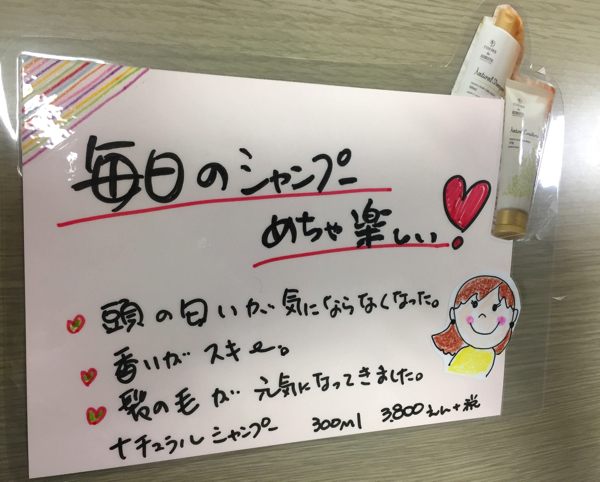 毎日のシャンプー
めちゃ楽しい
頭の匂いが気にならなくなった。
香いがスキ〜。
髪の毛が元気になってきました。
ナチュラルシャンプー 300ml 3,800えん+税
Natural
Natural